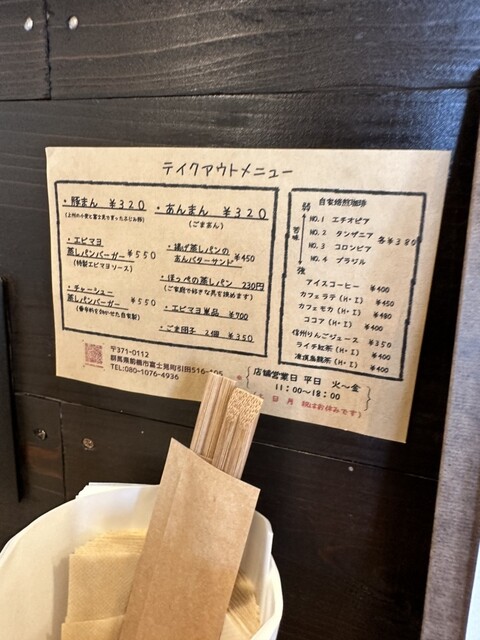 テイクアウトメニュー
・豚まん ¥320
・あんまん ¥320
(ごまあん)
・エビマヨ
蒸しパンバーガー ¥550
(特製エビマヨソース)
・チャーシュー
蒸しパンバーガー ¥550
・揚げ蒸しパンの
あんバターサンド ¥450
・ほっぺの蒸しパン 230円
(ご家庭で好きな具を挟めます)
・エビマヨ単品 ¥700
・ごま団子 2個 ¥350
自家焙煎珈琲
弱
苦味
強
NO.1 エチオピア
NO.2 タンザニア
NO.3 コロンビア
NO.4 ブラジル
各¥380
アイスコーヒー ¥400
カフェラテ(H・I) ¥450
カフェモカ(H・I) ¥480
ココア(H・I) ¥400
信州りんごジュース ¥350
ライチ紅茶(H・I) ¥400
凍頂烏龍茶(H・I) ¥400
〒371-0112
群馬県前橋市富士見町引田516-105
TEL:080-1076-4936
店舗営業日 平日 火〜金
11:00〜18:00
日 月 祝はお休みです